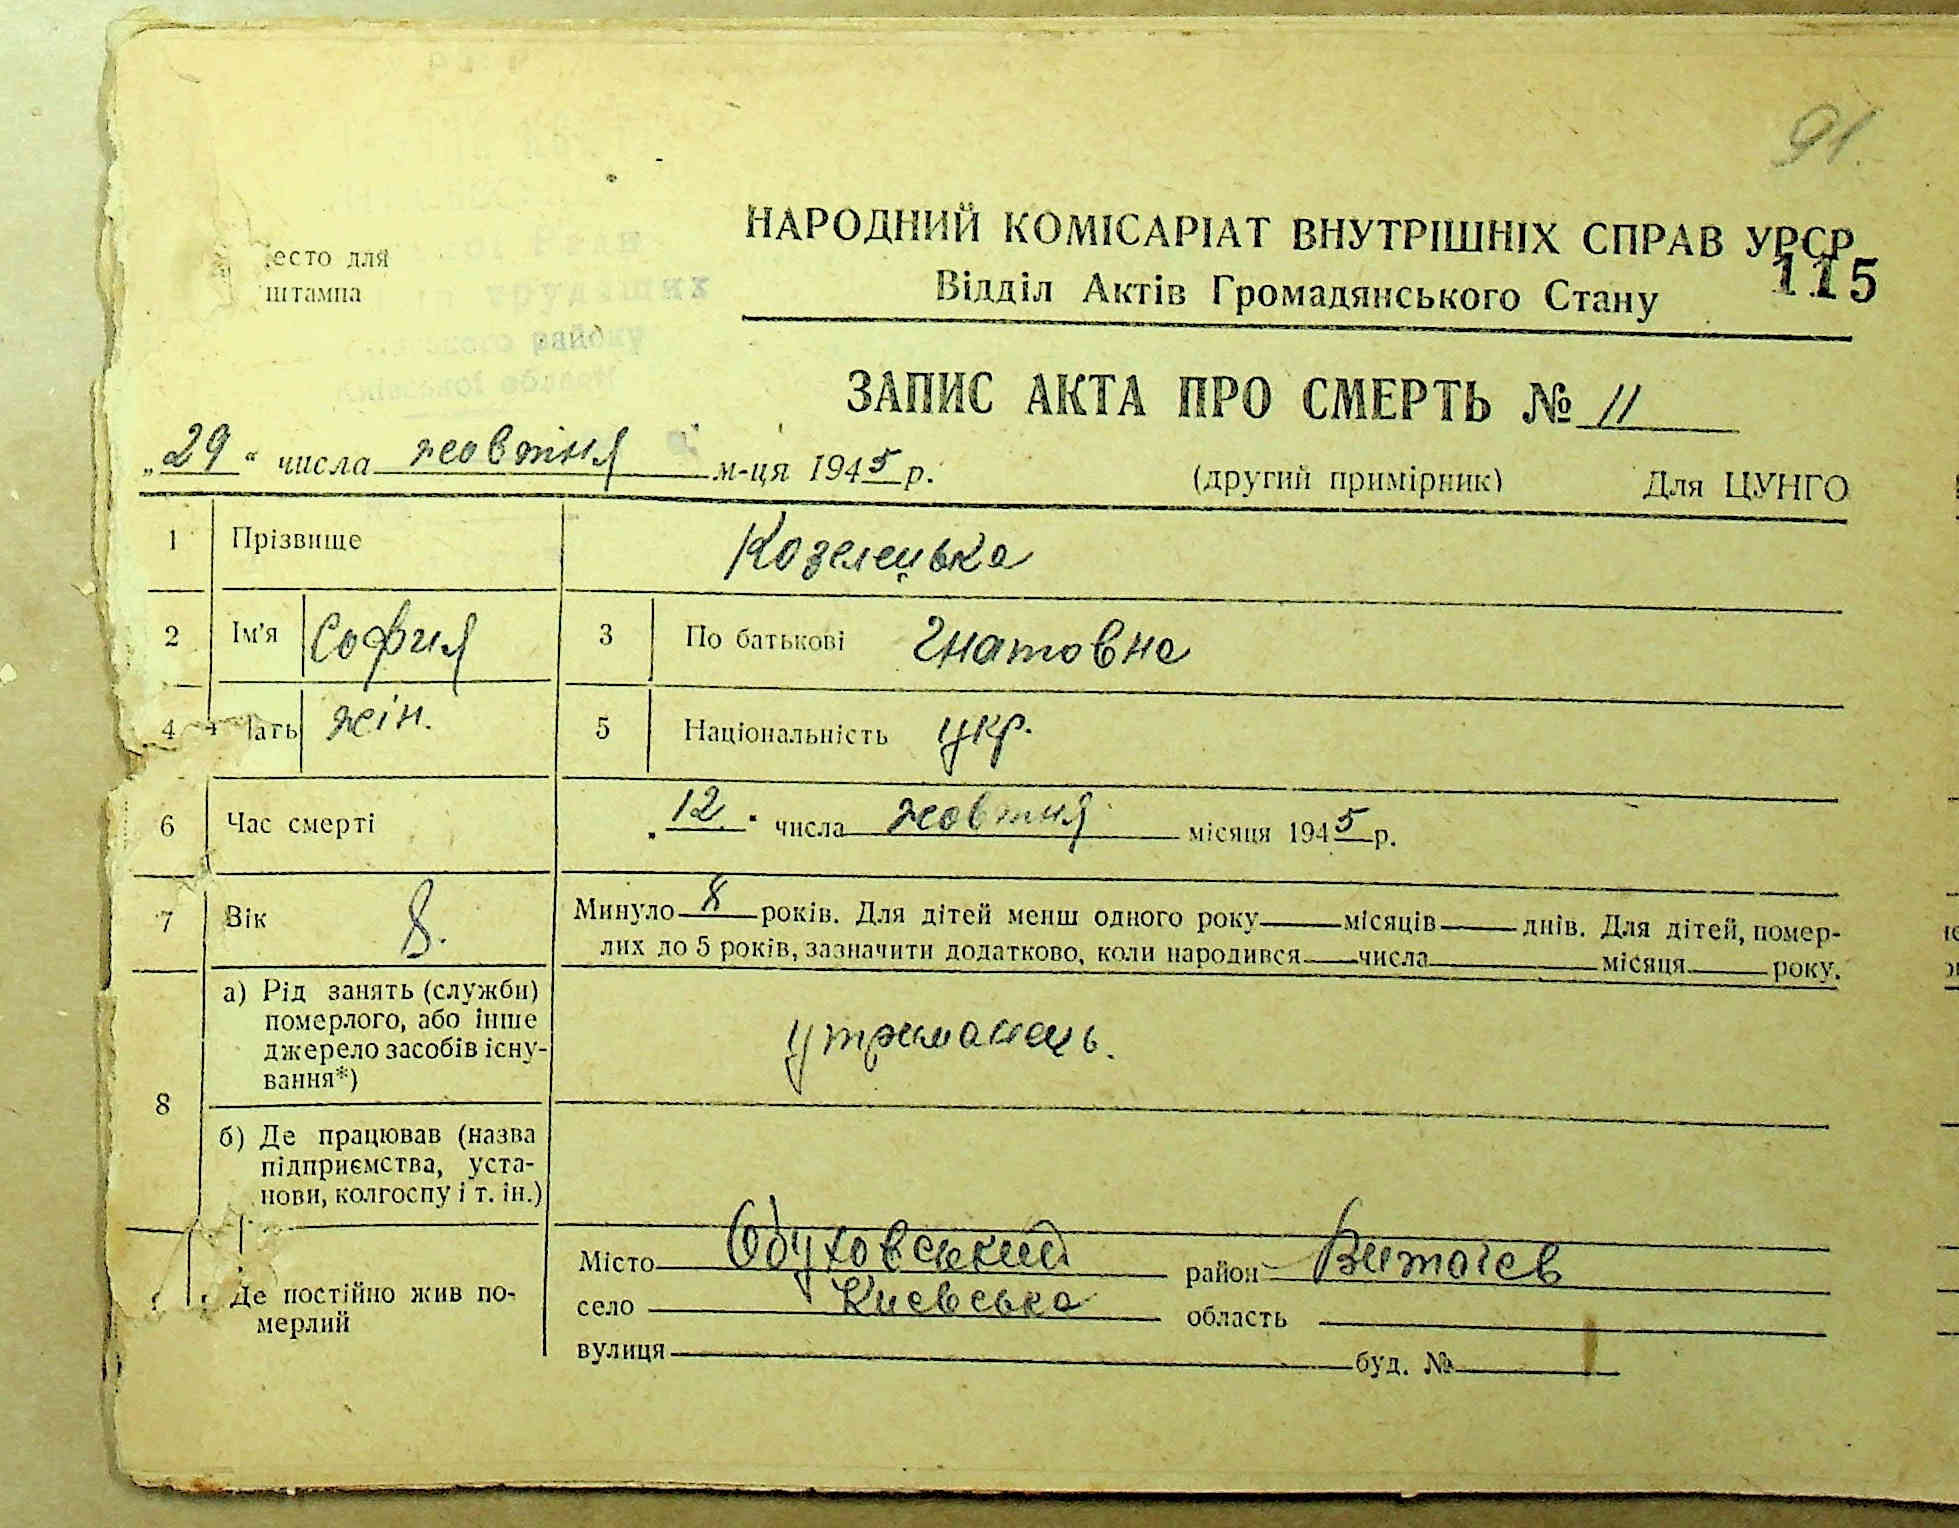 91.
НАРОДНИЙ КОМІСАРІАТ ВНУТРІШНІХ СПРАВ УРСР
115
есто для
штампа
Відділ Актів Громадянського Стану
району
ЗАПИС АКТА ПРО СМЕРТЬ № 11
„29“ числа жовтня м-ця 1945 р.
(другий примірник) Для ЦУНГО
1 Прізвище Козелецька
2 Ім'я София 3 По батькові Гнатовна
4 лать жін. 5 Національність укр.
6 Час смерті „12“ числа жовтня місяця 1945 р.
7 Вік 8. Минуло 8 років. Для дітей менш одного року місяців днів. Для дітей, помер-
лих до 5 років, зазначити додатково, коли народився числа місяця року.
8 а) Рід занять (служби)
померлого, або інше
джерело засобів існу-
вання*)
утриманець.
б) Де працював (назва
підприємства, уста-
нови, колгоспу і т. ін.)
Де постійно жив по-
мерлий
Місто Обуховський район Витачев
село Киевська область
вулиця буд. №